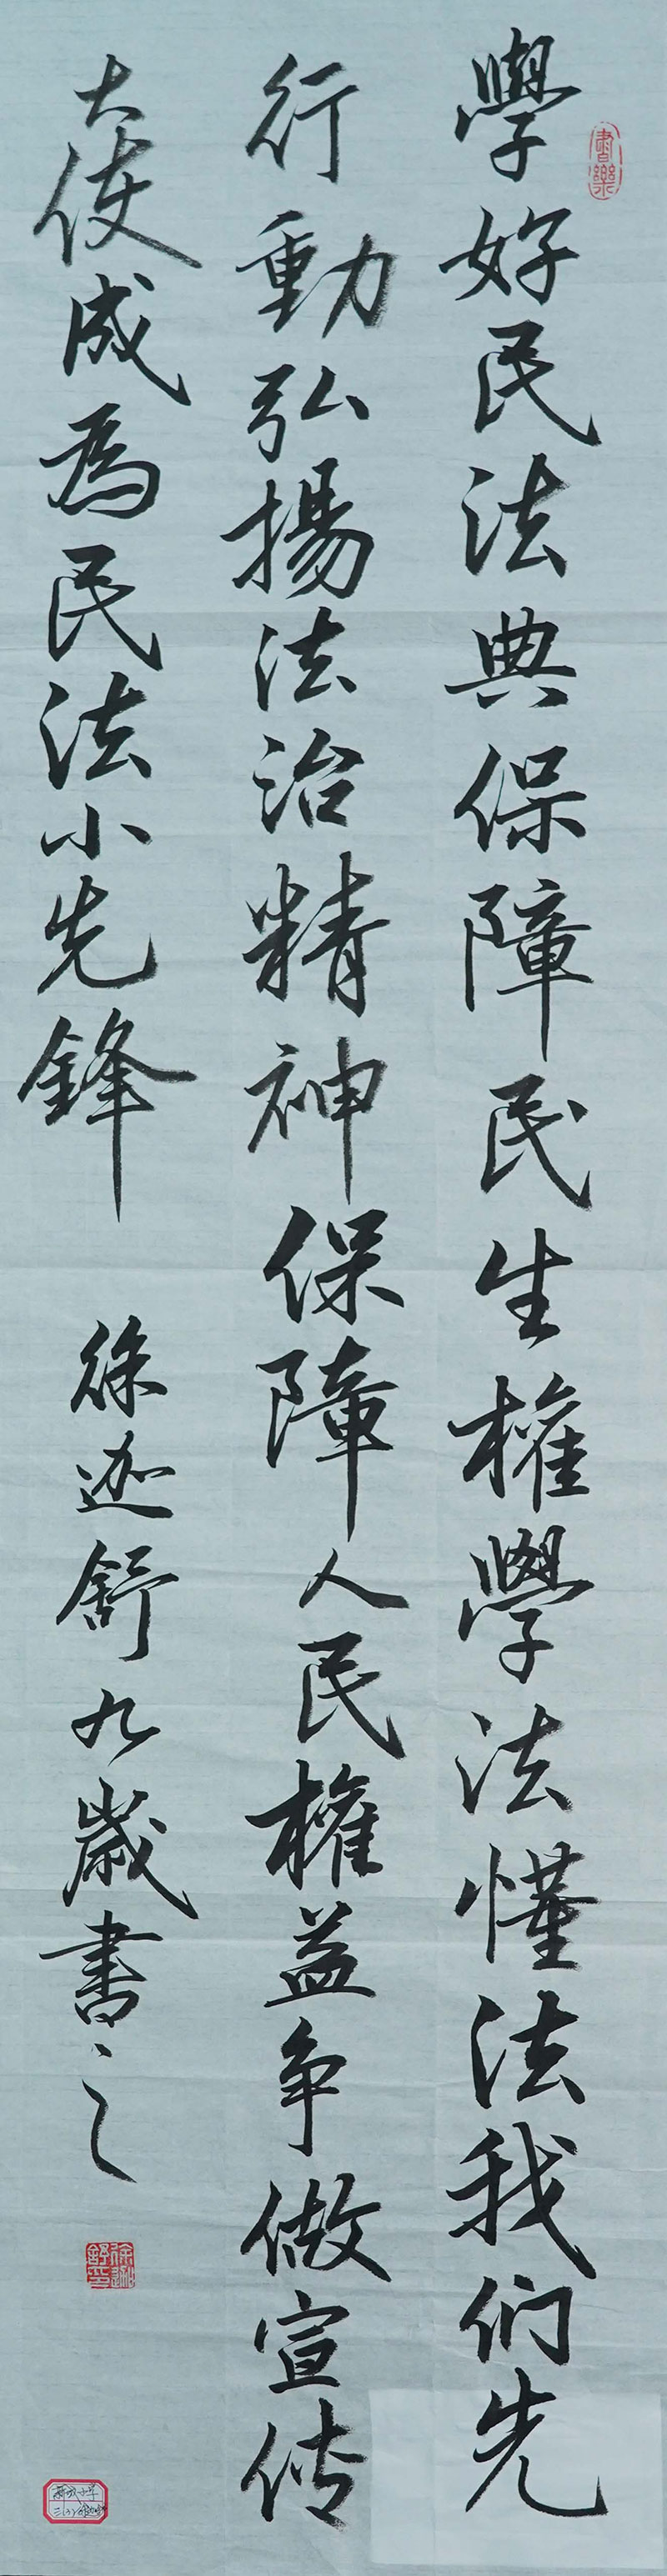 學好民法典保障民生權學法懂法我们先
行動弘揚法治精神保障人民權益争做宣传
大使成為民法小先鋒 徐迦舒九歲書之
書樂
徐迦舒印